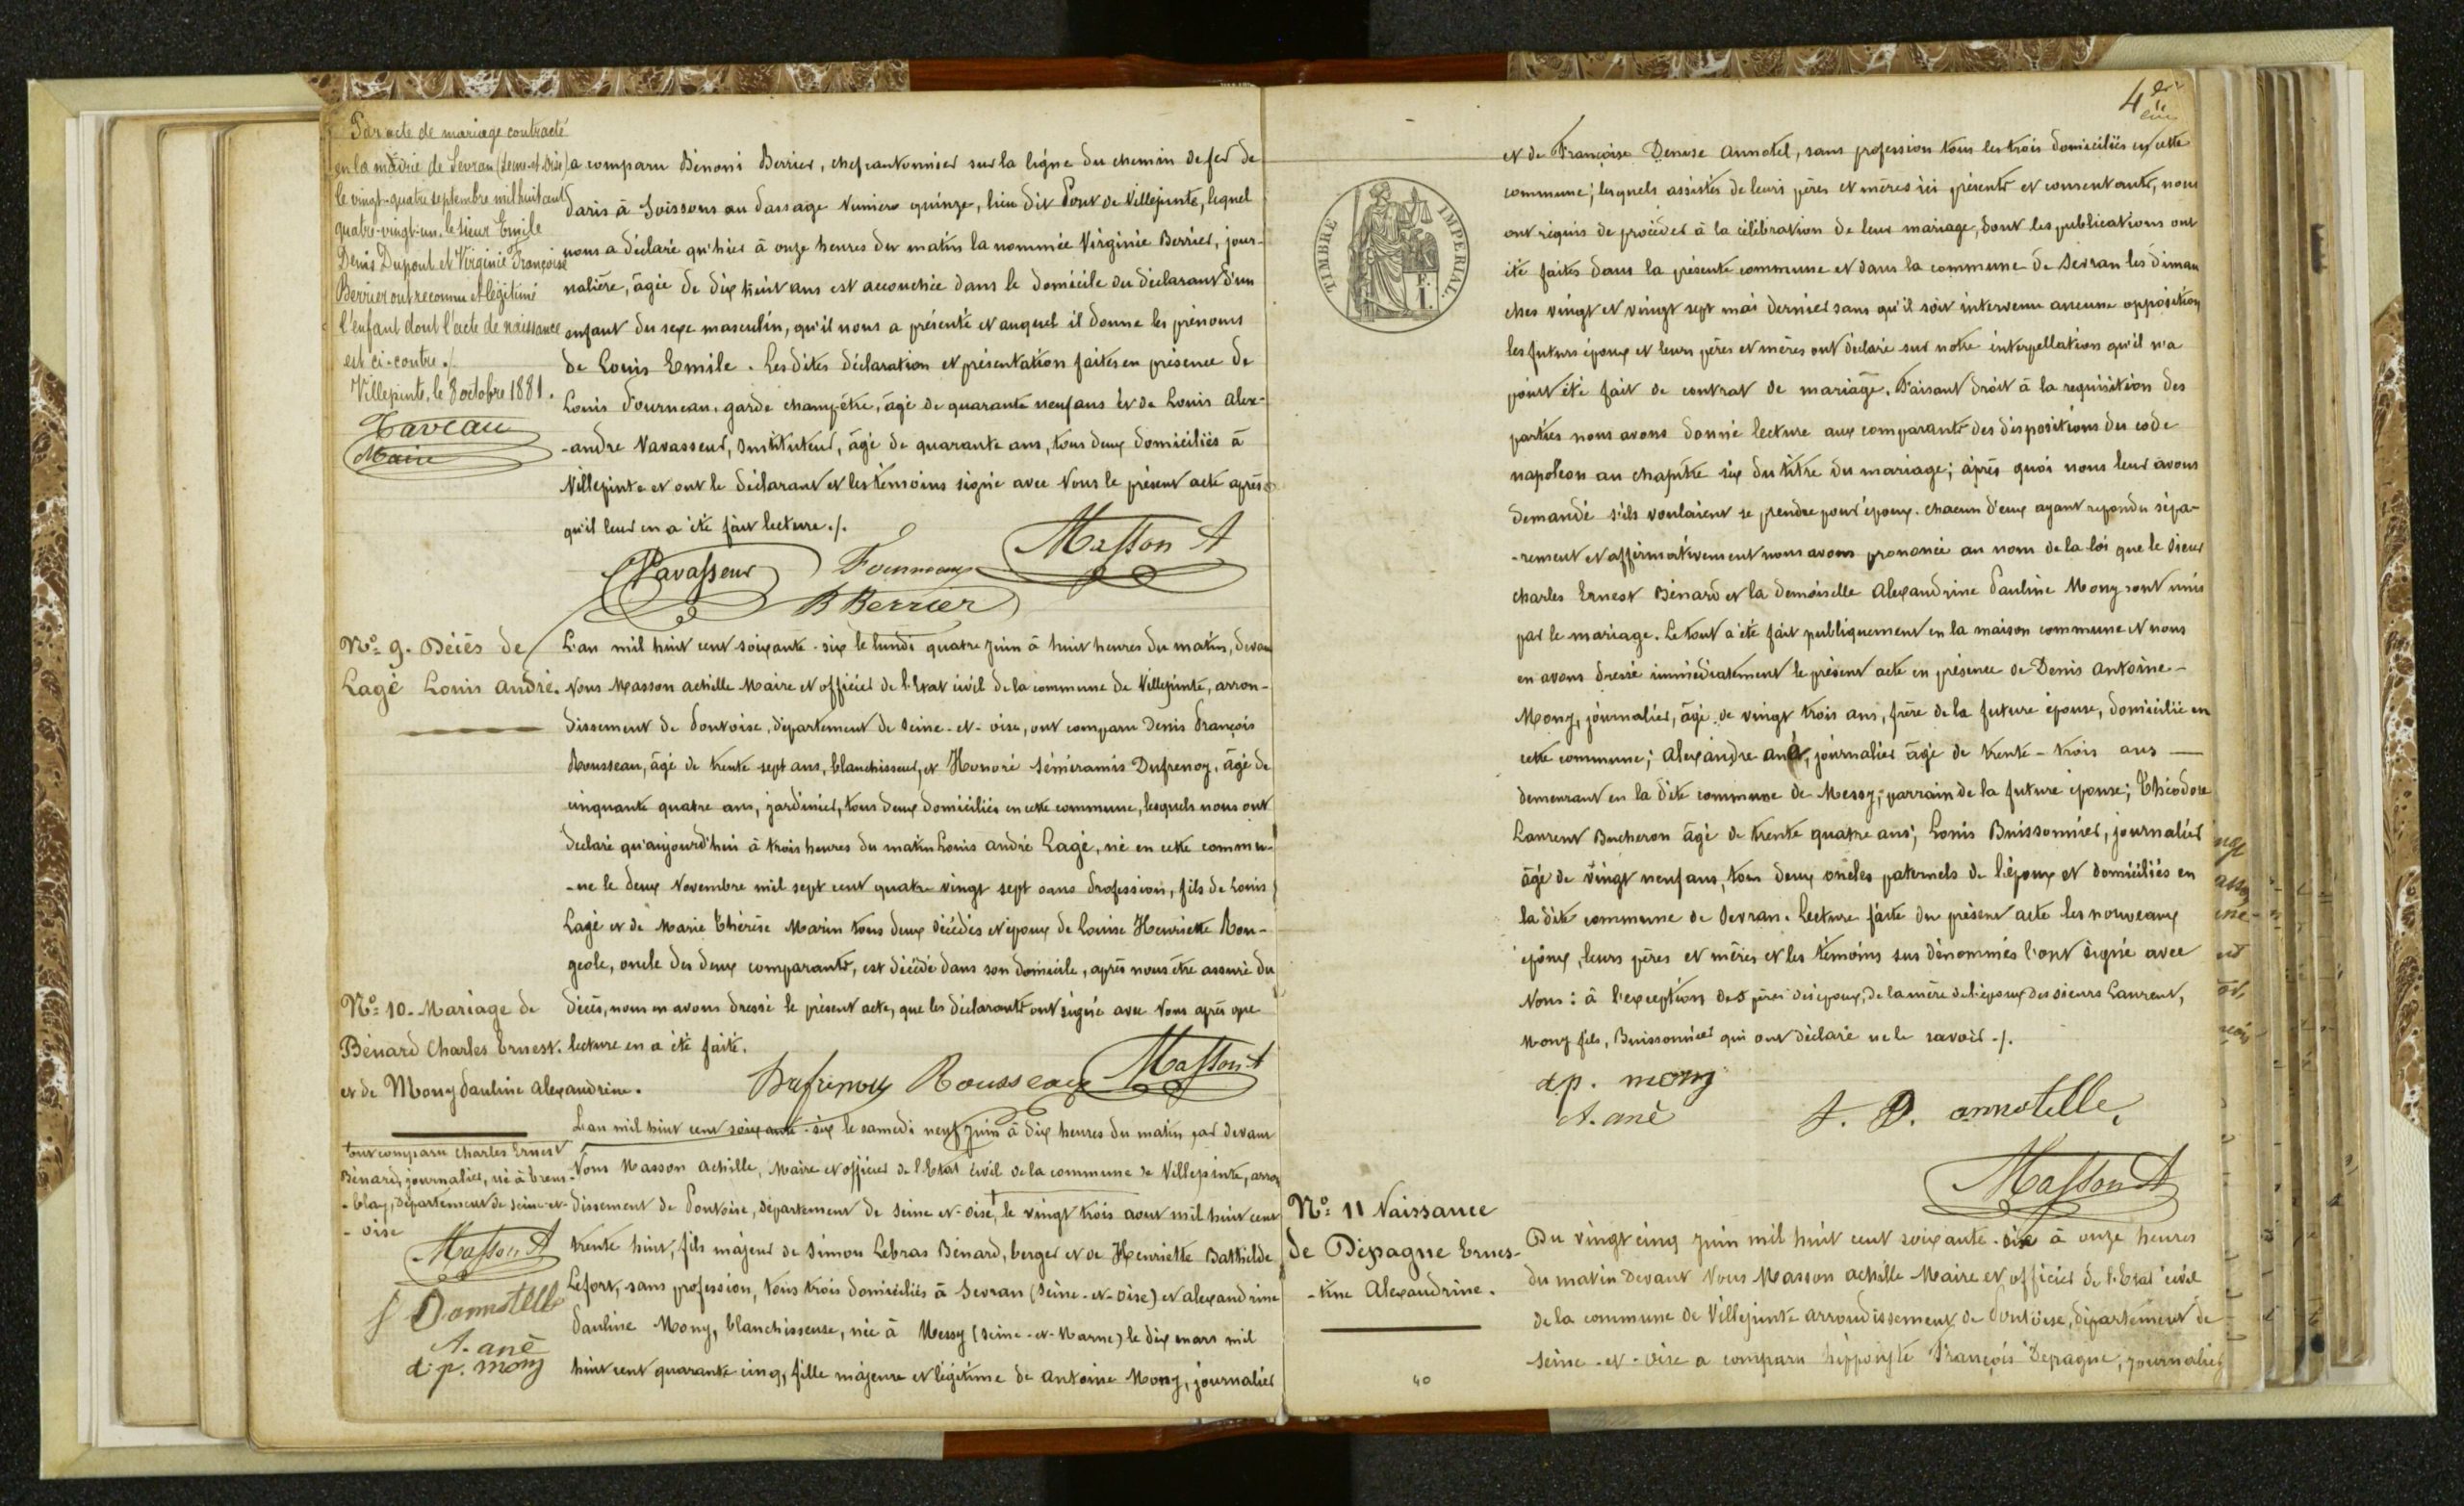 Par acte de mariage contracté
en la mairie de Sevran (Seine-et-Oise)
le vingt-quatre septembre mil huit cent
quatre-vingt-un, le sieur Emile
Denis Dupont et Virginie Françoise
Berrier ont reconnu et légitimé
l'enfant dont l'acte de naissance
est ci-contre ./.
Villepinte, le 8 octobre 1881.
Taveau
Maire
a comparu Bénoni Berrier, chef cantonnier sur la ligne du chemin de fer de
Paris à Soissons au Passage Numéro quinze, lieu dit Pont de Villepinte, lequel
nous a déclaré qu'hier à onze heures du matin la nommée Virginie Berrier, jour-
nalière, âgée de dix huit ans est accouchée dans le domicile du déclarant d'un
enfant du sexe masculin, qu'il nous a présenté et auquel il donne les prénoms
de Louis Emile. Les dites déclaration et présentation faites en présence de
Louis Fourneau, garde champêtre, âgé de quarante neuf ans et de Louis Alex-
-andre Vavasseur, Instituteur, âgé de quarante ans, tous deux domiciliés à
Villepinte et ont le déclarant et les témoins signé avec Nous le présent acte après
qu'il leur en a été fait lecture ./.
Vavasseur Fourneau Masson A
B Berrier
No: 9. Décès de
Lagé Louis André.
L'an mil huit cent soixante-six le lundi quatre juin à huit heures du matin, devan
Nous Masson Achille Maire et officier de l'Etat civil de la commune de Villepinte, arron-
dissement de Pontoise, département de Seine-et-oise, ont comparu Denis François
Rousseau, âgé de trente sept ans, blanchisseur, et Honoré Séméramis Dufrenoy, âgé de
cinquante quatre ans, jardinier, tous deux domiciliés en cette commune, lesquels nous ont
déclaré qu'aujourd'hui à trois heures du matin Louis André Lagé, né en cette commu-
-ne le deux Novembre mil sept cent quatre vingt sept sans profession, fils de Louis
Lagé et de Marie Thérèse Marin tous deux décédés et époux de Louise Henriette Rou-
geole, oncle des deux comparants, est décédé dans son domicile, après nous être assuré du
décès, nous en avons dressé le présent acte, que les déclarants ont signé avec Nous après que
lecture en a été faite.
Dufrenoy Rousseau Masson A
No: 10. Mariage de
Bénard Charles Ernest.
et de Mony Pauline Alexandrine.
L'an mil huit cent soixante-six le samedi neuf juin à dix heures du matin par devant
Nous Masson Achille, Maire et officier de l'Etat civil de la commune de Villepinte, arron
dissement de Pontoise, département de Seine et-oise, † le vingt trois aout mil huit cent
trente huit, fils majeur de Simon Lebras Bénard, berger et de Henriette Bathilde
Lefort, sans profession, tous trois domiciliés à Sevran (Seine-et-Oise) et Alexandrine
Pauline Mony, blanchisseuse, née à Messy (Seine-et-Marne) le dix mars mil
huit cent quarante cinq, fille majeure et légitime de Antoine Mony, journalier
† ont comparu Charles Ernest
Bénard, journalier, né à Trem-
-blay, département de Seine-et-
-oise
Masson A
f Dannotelle
A. ané
d. p. mony
4
et de Françoise Denise Annotel, sans profession tous les trois domiciliés en cette
commune; lesquels assistés de leurs pères et mères ici présents et consentants, nous
ont réquis de procéder à la célébration de leur mariage, dont les publications ont
été faites dans la présente commune et dans la commune de Sevran les diman
ches vingt et vingt sept mai dernier sans qu'il soit intervenu aucune opposition
les futurs époux et leurs pères et mères ont déclaré sur notre interpellation qu'il n'a
point été fait de contrat de mariage. Faisant droit à la requisition des
parties nous avons donné lecture aux comparants des dispositions du code
napoléon au chapitre six du titre du mariage; après quoi nous leur avons
demandé s'ils voulaient se prendre pour époux. chacun d'eux ayant répondu sépa-
-rement et affirmativement nous avons prononcé au nom de la loi que le Sieur
Charles Ernest Bénard et la demoiselle Alexandrine Pauline Mony sont unis
par le mariage. Le tout a été fait publiquement en la maison commune et nous
en avons dressé immédiatement le présent acte en présence de Denis Antoine-
Mony, journalier, âgé de vingt trois ans, frère de la future épouse, domicilié en
cette commune; Alexandre Ané, journalier âgé de trente-trois ans
demeurant en la dite commune de Messy, parrain de la future épouse; Théodore
Laurent Bucheron âgé de trente quatre ans; Louis Buissonnier, journalier
âgé de vingt neuf ans, tous deux oncles paternels de l'époux et domiciliés en
la dite commune de Sevran. Lecture faite du présent acte les nouveaux
époux, leurs pères et mères et les témoins sus dénommés l'ont signé avec
Nous: à l'exception des pères des époux, de la mère de l'époux des sieurs Laurent,
Mony fils, Buissonnier qui ont déclaré ne le savoir ./.
d p. mony
A. ané
f. D. annotelle
Masson A
TIMBRE IMPÉRIAL
No: 11 Naissance
de Depagne Ernes-
-tine Alexandrine.
Du vingt cinq juin mil huit cent soixante-six à onze heures
du matin devant Nous Masson Achille Maire et officier de l'Etat civil
de la commune de Villepinte arrondissement de Pontoise, département de
Seine-et-oise a comparu hippolyte François Depagne, journalier
40